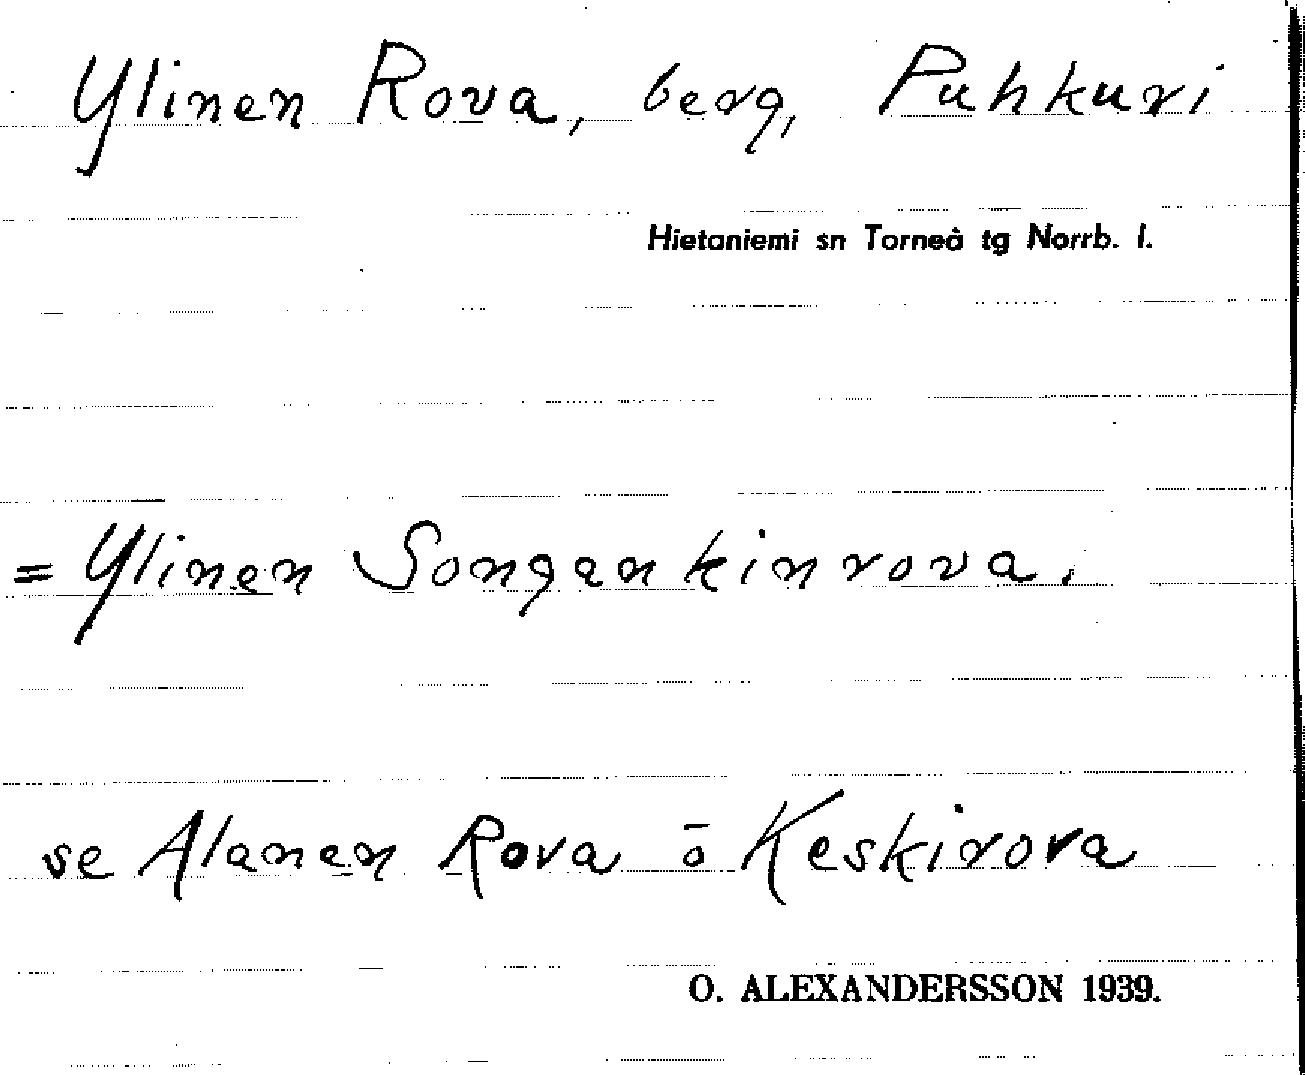 Ylinen Rova, berg, Puhkuri
Hietaniemi sn Torneå tg Norrb. l.
= Ylinen Songankinrova.
se Alanen Rova ō Keskirova
O. ALEXANDERSSON 1939.